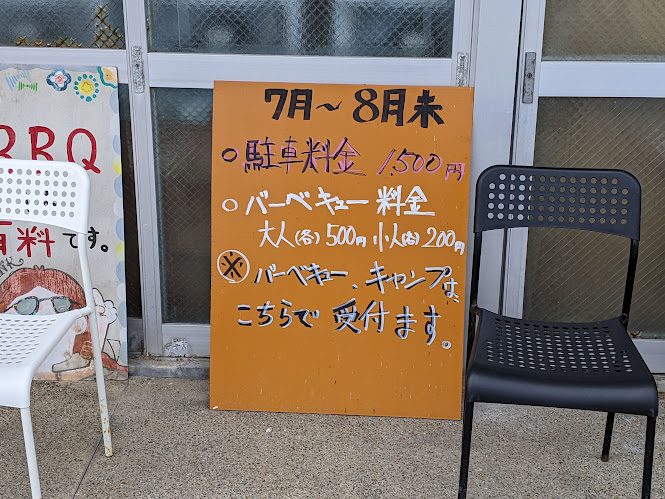 BBQ
有料です。
7月～8月末
○駐車料金 1,500円
○バーベキュー料金
大人(各)500円 小人(各)200円
※バーベキュー、キャンプは、
こちらで受付ます。